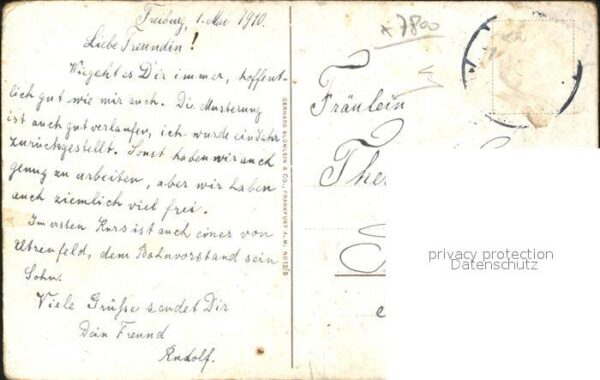 Freiburg, 1. Mai 1910.
Liebe Freundin!
Wie geht es Dir immer, hoffent-
lich gut wie mir auch. Die Musterung
ist auch gut verlaufen, ich wurde ein Jahr
zurückgestellt. Sonst haben wir auch
genug zu arbeiten, aber wir haben
auch ziemlich viel frei.
Im ersten Kurs ist auch einer von
Utzenfeld, dem Bahnvorstand sein
Sohn.
Viele Grüße sendet Dir
Dein Freund
Rudolf.
GERHARD BLÜMLEIN & CO., FRANKFURT A. M.
7800
Fräulein
The
privacy protection
Datenschutz